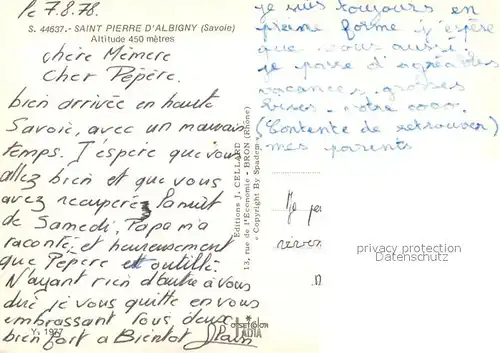 le 7.8.78.
S. 44637.- SAINT PIERRE D'ALBIGNY (Savoie)
Altitude 450 mètres
chère Mèmere
Cher Pépère.
bien arrivée en haute
Savoie, avec un mauvais
temps. J'espère que vous
allez bien et que vous
avez recuperer la nuit
de Samedi, Papa m'a
raconté, et heureusement
que Pépère et outillé.
N'ayant rien d'autre à vous
dire je vous quitte en vous
embrassant tous deux
bien fort a Bientot Alain
Y. 1977
je suis toujours en
pleine forme j'espère
que vous aussi.
je passe d'agréables
vacances. grosses
bises. votre
(Contente de retrouver)
mes parents
Editions J. CELLARD
13, rue de l'Economie - BRON (Rhône)
© Copyright By Spadem
privacy protection
Datenschutz